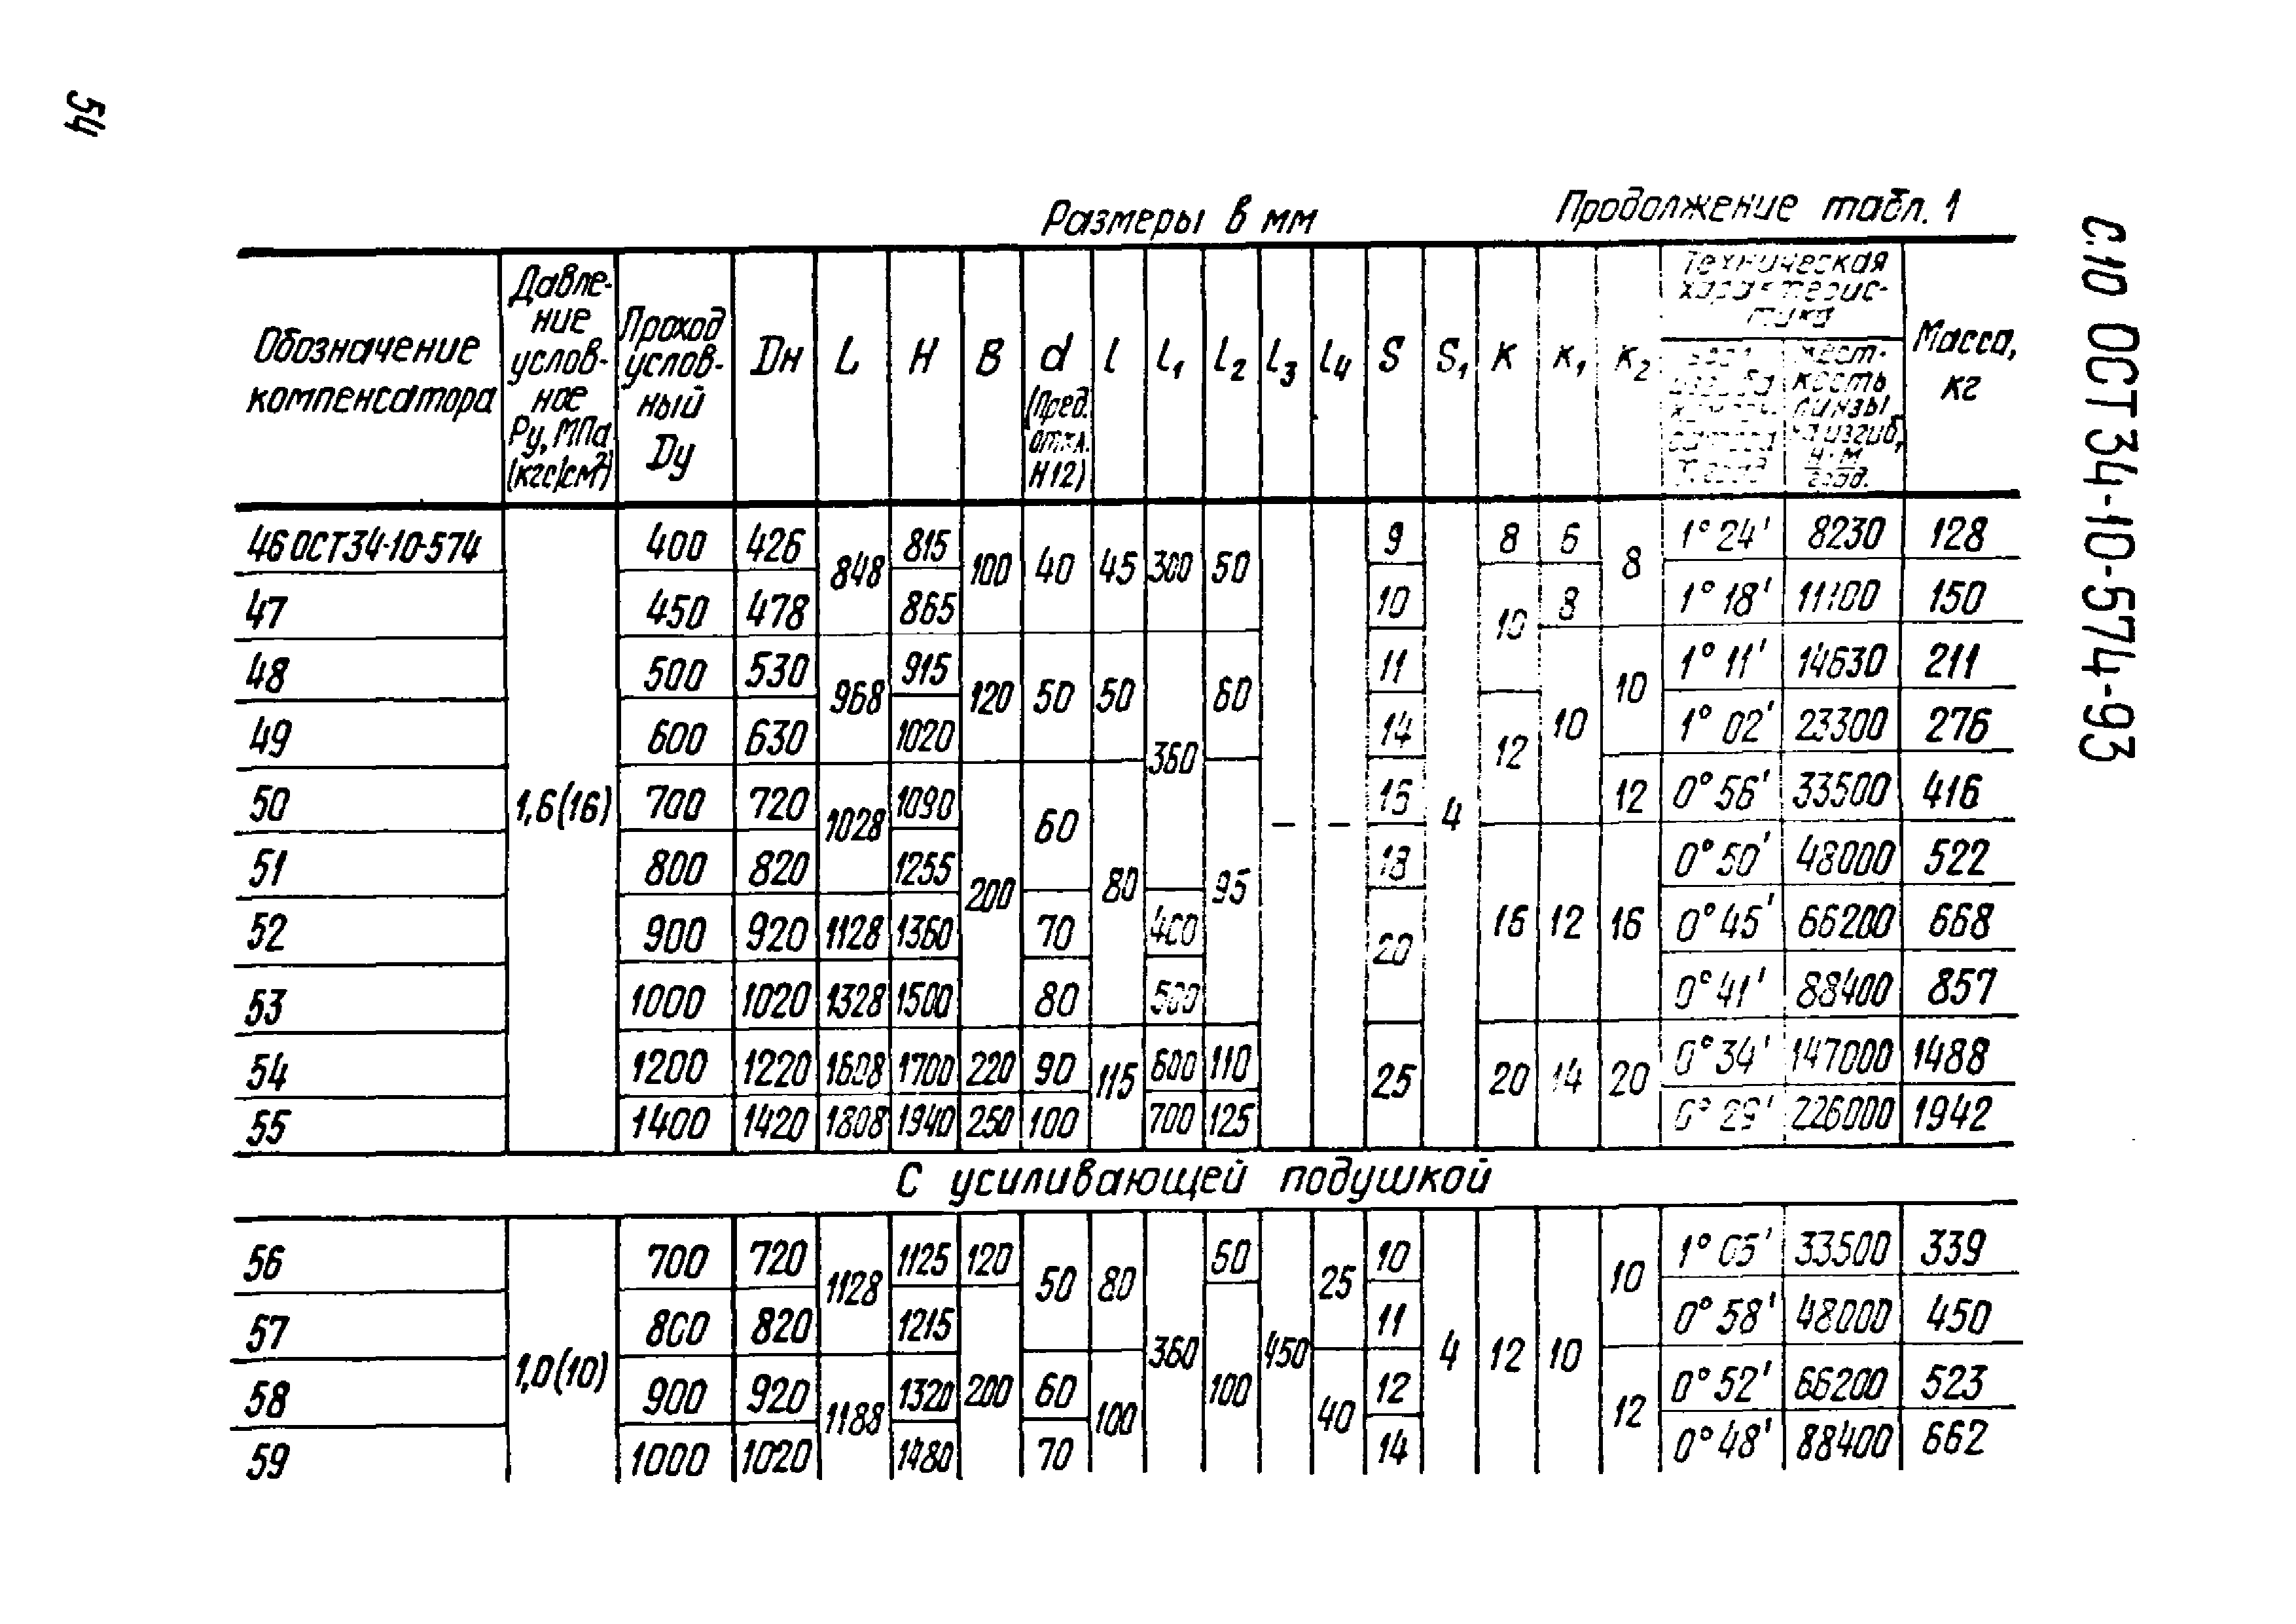 54
С.10 ОСТ 34-10-574-93
Размеры в мм
Продолжение табл. 1
Обозначение компенсатора
Давление условное Ру, МПа (кгс/см²)
Проход условный Dу
Dн L H B d (Пред. откл. H12) l l₁ l₂ l₃ l₄ S S₁ K K₁ K₂
Техническая характеристика
Масса, кг
жесткость линзы на изгиб, Н·м/град.
46 ОСТ34-10-574 1,6(16) 400 426 848 815 100 40 45 300 50 – – 9 4 8 6 8 1°24' 8230 128
47 450 478 865 10 10 8 1°18' 11100 150
48 500 530 968 915 120 50 50 360 60 11 10 10 1°11' 14630 211
49 600 630 1020 14 12 1°02' 23300 276
50 700 720 1028 1090 200 60 80 95 16 12 0°56' 33500 416
51 800 820 1255 18 16 12 16 0°50' 48000 522
52 900 920 1128 1360 70 400 20 0°45' 66200 668
53 1000 1020 1328 1500 80 500 0°41' 88400 857
54 1200 1220 1608 1700 220 90 115 600 110 25 20 14 20 0°34' 147000 1488
55 1400 1420 1808 1940 250 100 700 125 0°29' 226000 1942
С усиливающей подушкой
56 1,0(10) 700 720 1128 1125 120 50 80 360 60 450 25 10 4 12 10 10 1°05' 33500 339
57 800 820 1215 200 100 11 0°58' 48000 450
58 900 920 1188 1320 60 100 40 12 12 0°52' 66200 523
59 1000 1020 1480 70 14 0°48' 88400 662